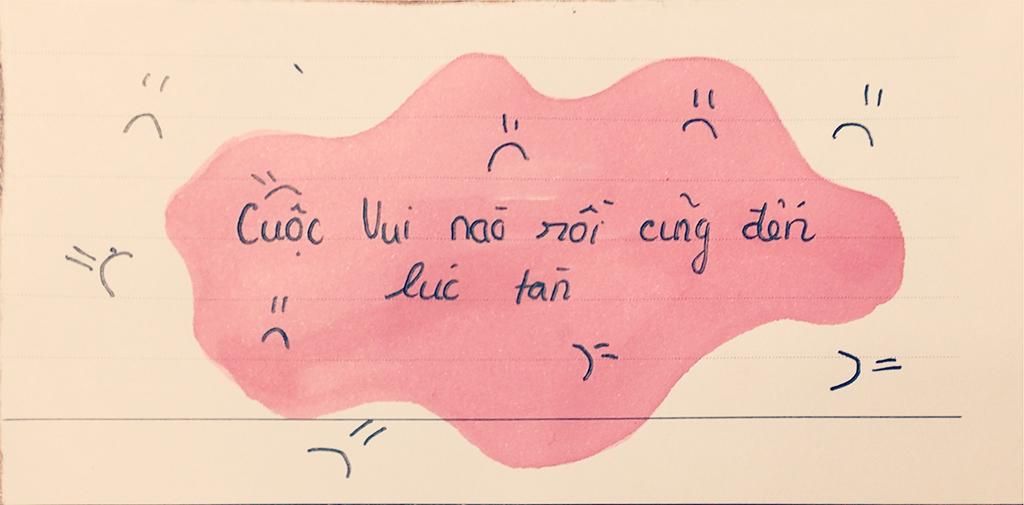 Cuộc Vui nào rồi cũng đến
lúc tàn